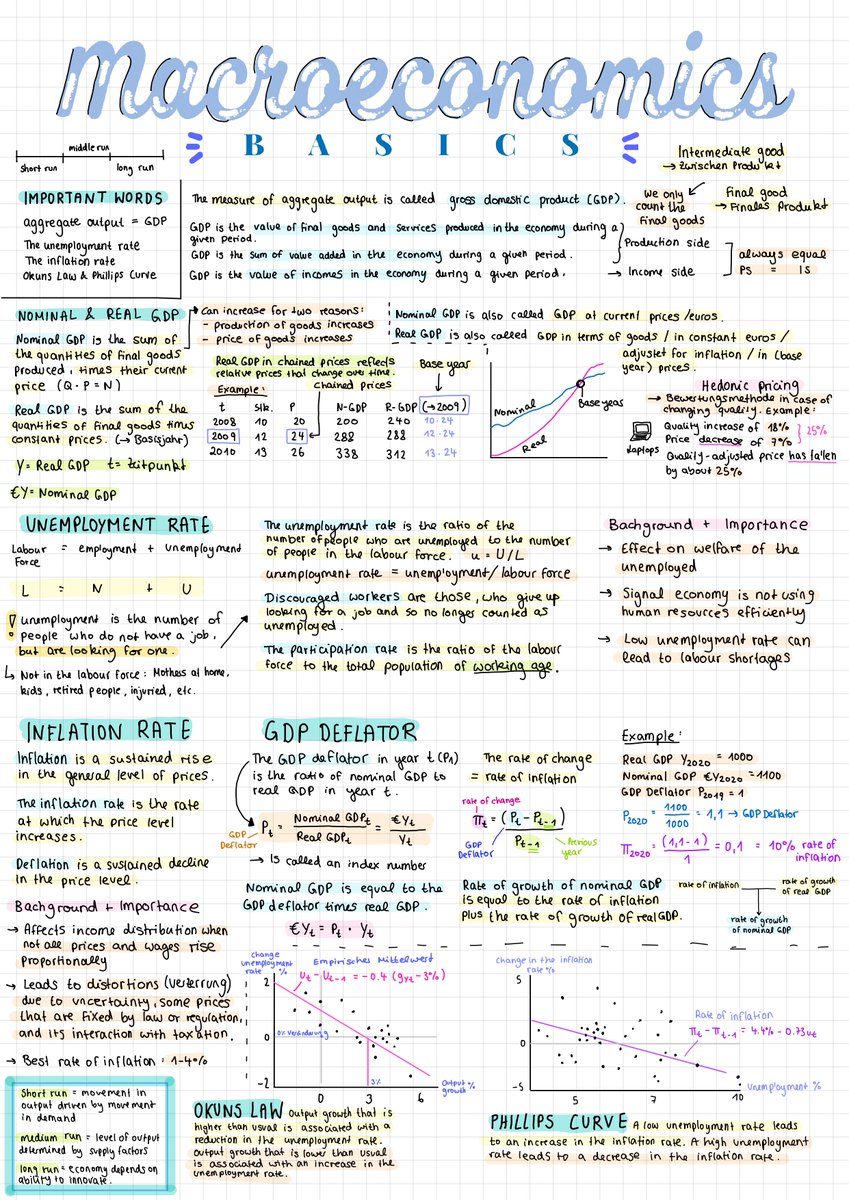 Macroeconomics
BASICS
middle run
short run
long run
Intermediate good
→ Zwischen Produkt
IMPORTANT WORDS
aggregate output = GDP
The unemployment rate
The inflation rate
Okuns Law & Phillips Curve
The measure of aggregate output is called gross domestic product (GDP).
GDP is the value of final goods and services produced in the economy during a
given period.
GDP is the sum of value added in the economy during a given period.
GDP is the value of incomes in the economy during a given period.
We only
count the
final goods
Final good
→ Finales Produkt
Production side
→ Income side
always equal
PS = IS
NOMINAL & REAL GDP
Nominal GDP is the sum of
the quantities of final goods
produced, times their current
price (Q · P = N)
Real GDP is the sum of the
quantities of final goods times
constant prices. (→ Basisjahr)
Y = Real GDP t = Zeitpunkt
€Y = Nominal GDP
Can increase for two reasons:
- production of goods increases
- price of goods increases
Nominal GDP is also called GDP at current prices/euros.
Real GDP is also called GDP in terms of goods / in constant euros /
adjustet for inflation / in (base
year) prices.
Real GDP in chained prices reflects
relative prices that change over time.
Example:
chained prices
Base year
t Stk. P N-GDP R-GDP (→2009)
2008 10 20 200 240 10·24
2009 12 24 288 288 12·24
2010 13 26 338 312 13·24
Nominal
Real
Base year
Hedonic Pricing
→ Bewertungsmethode in case of
changing quality. Example:
Laptops
Quality increase of 18%
Price decrease of 7%
25%
Quality-adjusted price has fallen
by about 25%
UNEMPLOYMENT RATE
Labour = employment + unemployment
Force
L = N + U
! unemployment is the number of
people who do not have a job,
but are looking for one.
↳ Not in the labour force: Mothers at home,
kids, retired people, injuried, etc.
The unemployment rate is the ratio of the
number of people who are unemployed to the number
of people in the labour force. u = U/L
unemployment rate = unemployment/labour force
Discouraged workers are those, who give up
looking for a job and so no longer counted as
unemployed.
The participation rate is the ratio of the labour
force to the total population of working age.
Background + Importance
→ Effect on welfare of the
unemployed
→ Signal economy is not using
human resources efficiently
→ Low unemployment rate can
lead to labour shortages
INFLATION RATE
Inflation is a sustained rise
in the general level of prices.
The inflation rate is the rate
at which the price level
increases.
Deflation is a sustained decline
in the price level.
Background + Importance
→ Affects income distribution when
not all prices and wages rise
proportionally
→ Leads to distortions (Verzerrung)
due to uncertainty, some prices
that are fixed by law or regulation,
and its interaction with taxation.
→ Best rate of inflation: 1-4%
GDP DEFLATOR
The GDP deflator in year t (Pt)
is the ratio of nominal GDP to
real GDP in year t.
GDP
Deflator
Pt = Nominal GDPt / Real GDPt = €Yt / Yt
→ Is called an index number
Nominal GDP is equal to the
GDP deflator times real GDP.
€Yt = Pt · Yt
The rate of change
= rate of inflation
rate of change
πt = (Pt - Pt-1) / Pt-1
GDP
Deflator
Previous
year
Rate of growth of nominal GDP
is equal to the rate of inflation
plus the rate of growth of real GDP.
Example:
Real GDP Y2020 = 1000
Nominal GDP €Y2020 = 1100
GDP Deflator P2019 = 1
P2020 = 1100/1000 = 1,1 → GDP Deflator
π2020 = (1,1-1)/1 = 0,1 = 10% rate of
inflation
rate of inflation
rate of growth
of real GDP
rate of growth
of nominal GDP
change
unemployment
rate %
Empirisches Mittelwert
Ut - Ut-1 = -0.4 (gyt - 3%)
2
1
0
-2
0% Veränderung
3%
0 3 6
Output
growth %
Change in the inflation
rate %
5
0
-5
Rate of inflation
πt - πt-1 = 4.4% - 0.73ut
5 7 10
Unemployment %
short run = movement in
output driven by movement
in demand
medium run = level of output
determined by supply factors
long run = economy depends on
ability to innovate.
OKUNS LAW Output growth that is
higher than usual is associated with a
reduction in the unemployment rate.
Output growth that is lower than usual
is associated with an increase in the
unemployment rate.
PHILLIPS CURVE A low unemployment rate leads
to an increase in the inflation rate. A high unemployment
rate leads to a decrease in the inflation rate.